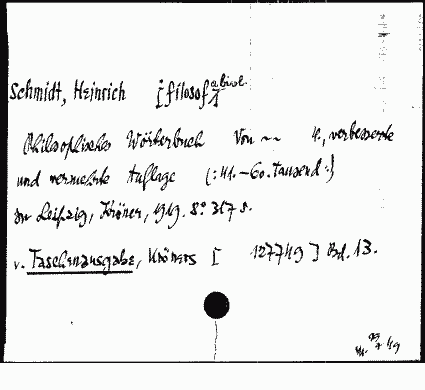 Schmidt, Heinrich [filosof]
Philosophisches Wörterbuch Von -- 4., verbesserte
und vermehrte Auflage (:41.-60. Tausend.)
Leipzig, Kröner, 1919. 8° 317 s.
v. Taschenausgabe, Kröners [127749] Bd. 13.
49